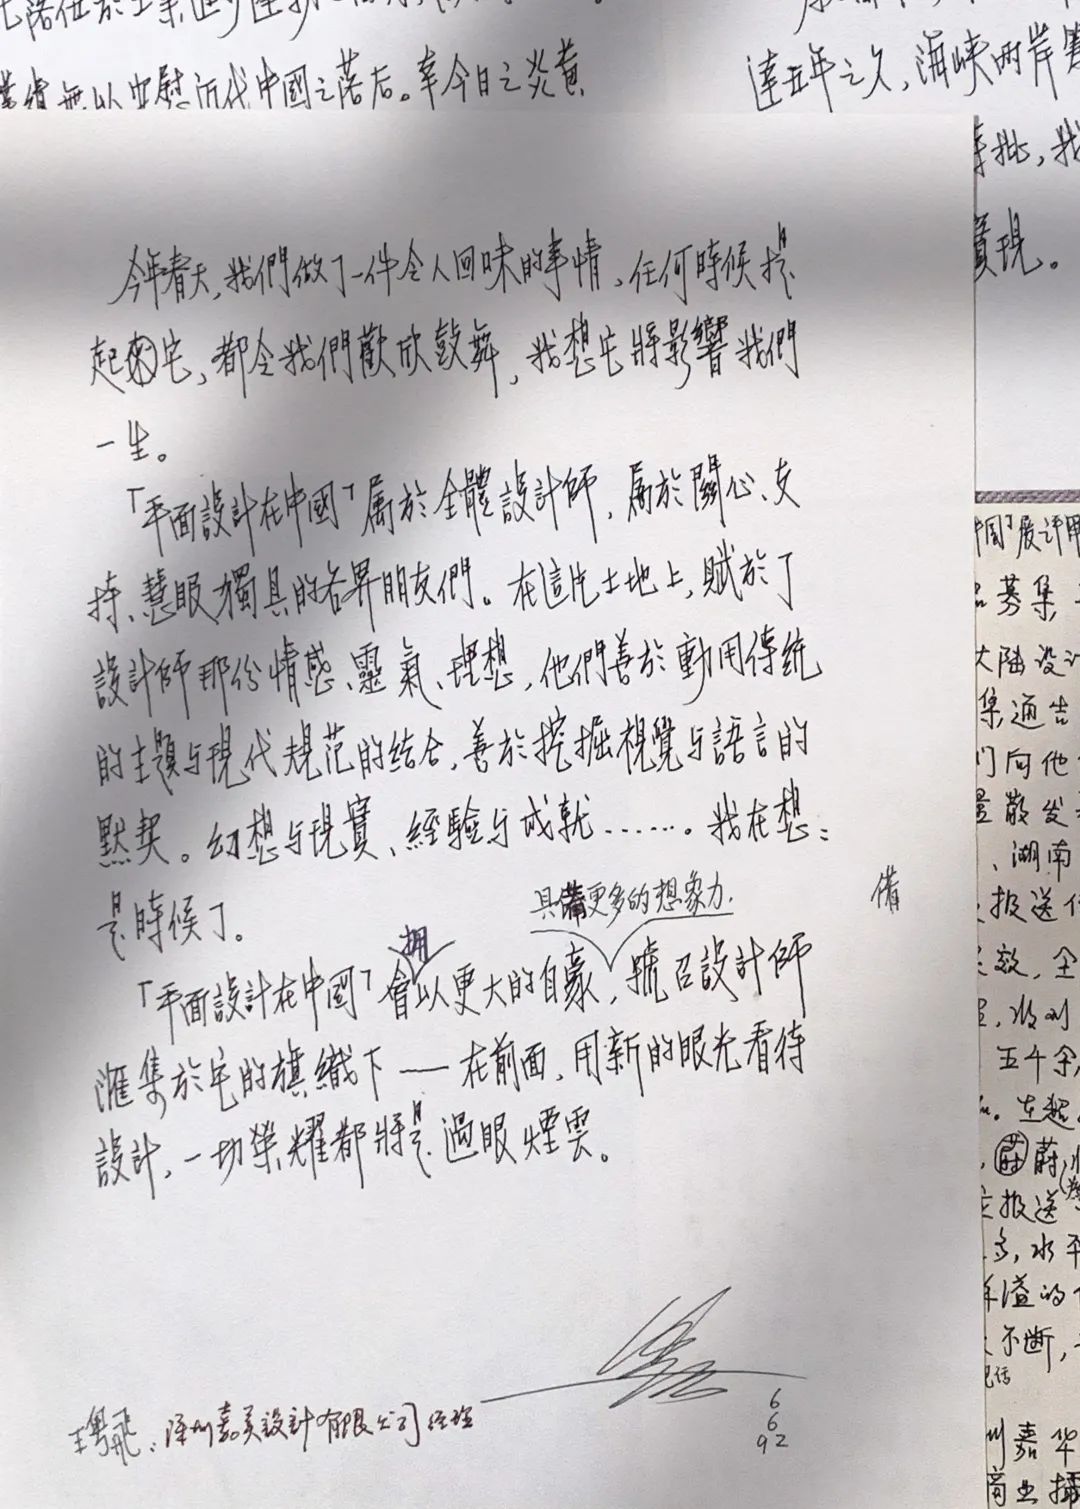 達五年之久,海峽兩岸
以安慰近代中國之落后。幸今日之炎黃
批,我
實現。
今年春天,我們做了一件令人回味的事情、任何時候提
起它,都令我們歡欣鼓舞,我想它將影響我們
一生。
「平面設計在中國」屬於全體設計師,屬於關心、支
持、慧眼獨具的各界朋友們。在這片土地上,賦於了
設計師那份情感、靈氣、理想,他們善於動用傳統
的主題与現代規范的结合,善於挖掘視覺与語言的
默契。幻想与現實、經驗与成就……。我在想:
是時候了。
具備更多的想象力.
備
拥
「平面設計在中國」會以更大的自豪,號召設計師
匯集於它的旗織下——在前面、用新的眼光看待
設計,一切榮耀都將是過眼煙雲。
王粤飛、深圳嘉美設計有限公司經理
6
6
92
中國」展评
募集,
大陆设计
集通告
们向他
散发
、湖南
报送
效,全
,收到
五千余
。左超
蔚蔚
报送
,水平
溢的
不断,
圳嘉华
商业